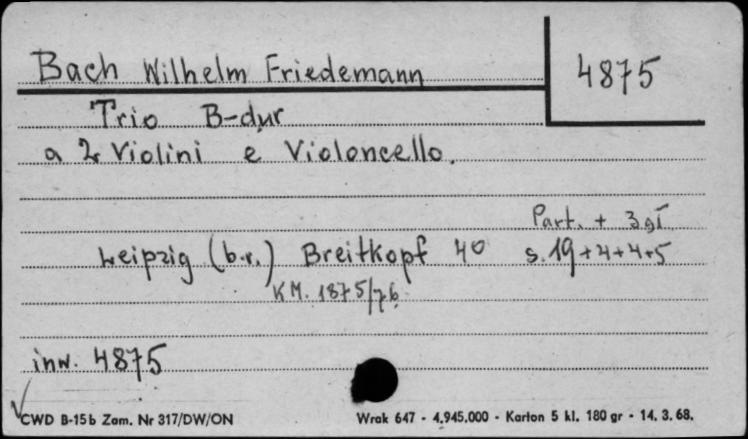 Bach Wilhelm Friedemann
4875
Trio B-dur
a 2 Violini e Violoncello.
Part. + 3 gł
Leipzig (b.r.) Breitkopf 4⁰ s. 19+4+4+5
KM. 1875/76
inw. 4875
CWD B-15b Zam. Nr 317/DW/ON
Wrak 647 - 4.945.000 - Karton 5 kl. 180 gr - 14. 3. 68.